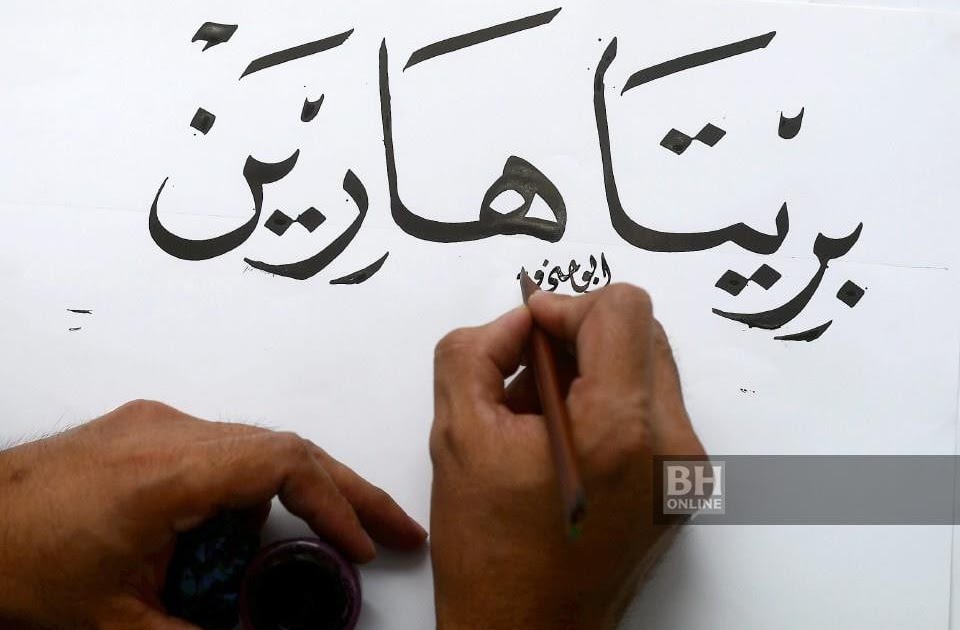 برِيْتَا هَارِيَنْ
ابو
BH
ONLINE